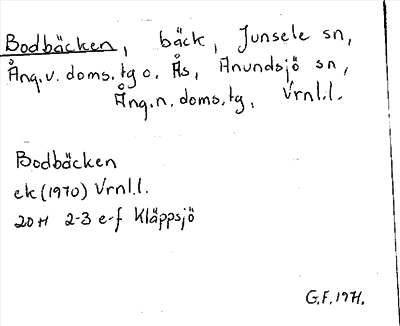 Bodbäcken, bäck, Junsele sn,
Ång.v. doms.tg o. Ås, Anundsjö sn,
Ång.n. doms.tg, Vrnl.l.
Bodbäcken
ek (1970) Vrnl.l.
20H 2-3 e-f Kläppsjö
G.F. 1971.